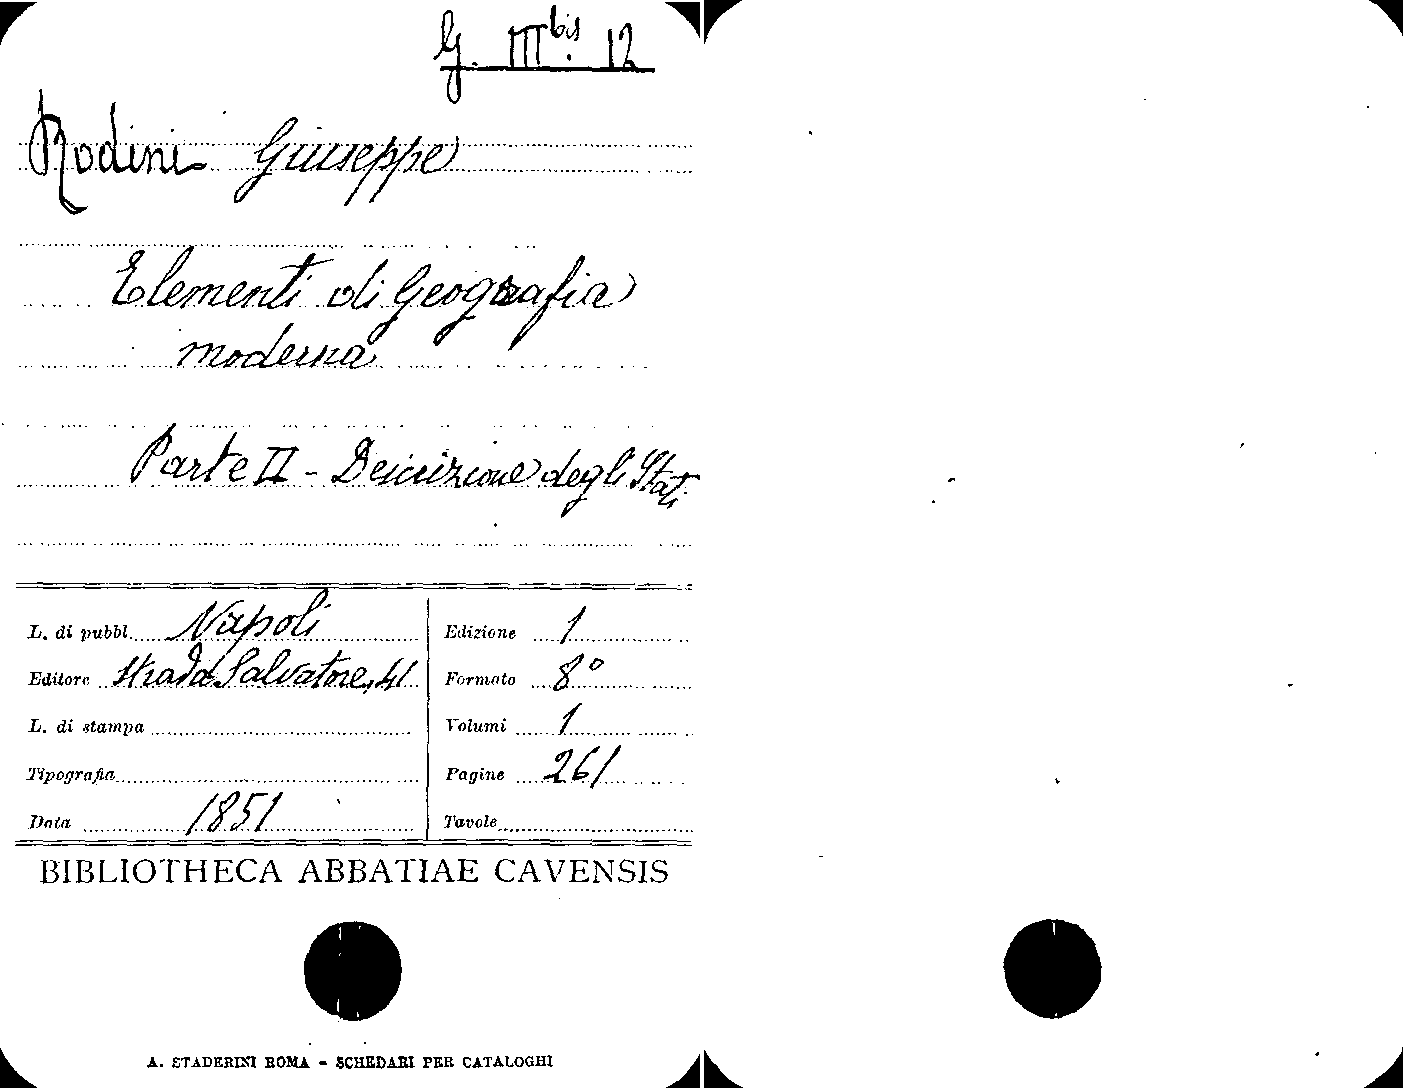 G. III bis. 12
Rodini Giuseppe
Elementi di Geografia
moderna
Parte II - Descrizione degli Stati
L. di pubbl. Napoli
Editore Strada Salvatore, 41
L. di stampa
Tipografia
Data 1851
Edizione 1
Formato 8°
Volumi 1
Pagine 261
Tavole
BIBLIOTHECA ABBATIAE CAVENSIS
A. STADERINI ROMA - SCHEDARI PER CATALOGHI